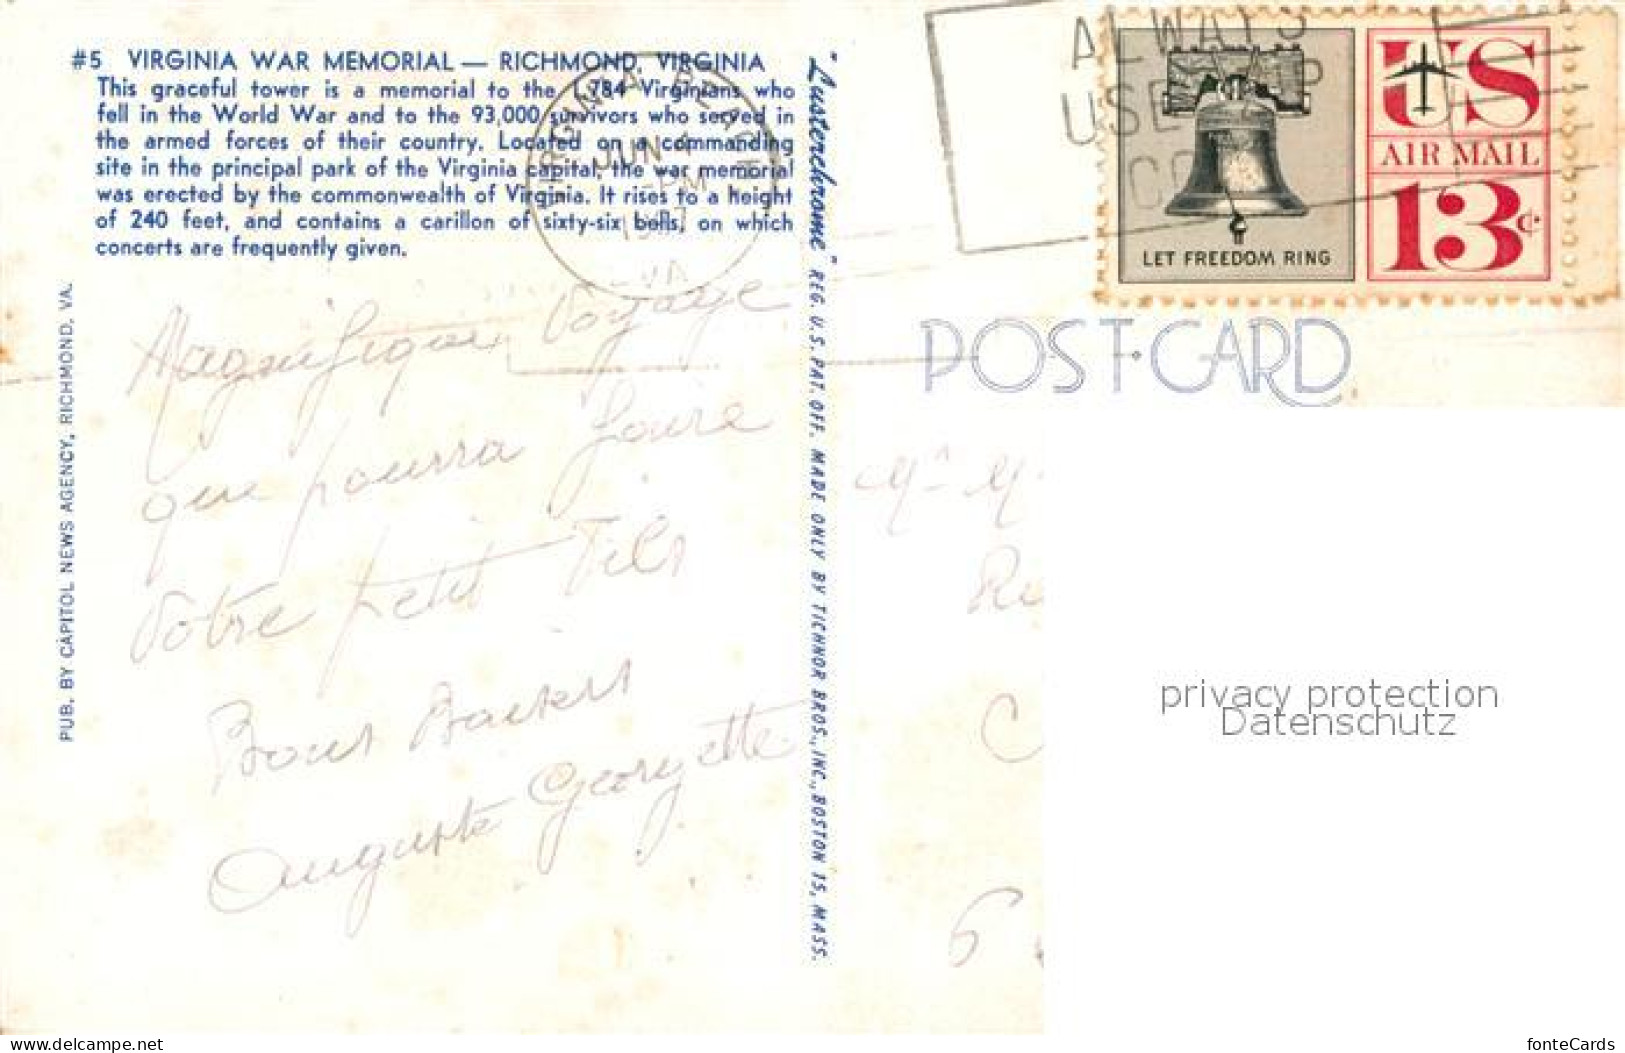 #5 VIRGINIA WAR MEMORIAL — RICHMOND, VIRGINIA
This graceful tower is a memorial to the 1,784 Virginians who
fell in the World War and to the 93,000 survivors who served in
the armed forces of their country. Located on a commanding
site in the principal park of the Virginia capital, the war memorial
was erected by the commonwealth of Virginia. It rises to a height
of 240 feet, and contains a carillon of sixty-six bells, on which
concerts are frequently given.
VIRGINIA BEACH
JUN
PM
VA
Magnifique Voyage
que pourra faire
Votre petit Fils
Bons Baisers
Auguste Georgette
PUB. BY CAPITOL NEWS AGENCY, RICHMOND, VA.
"Lusterchrome" REG. U.S. PAT. OFF. MADE ONLY BY TICHNOR BROS., INC., BOSTON 15, MASS.
ALWAYS
USE ZIP
LET FREEDOM RING
US
AIR MAIL
13c
POST CARD
privacy protection
Datenschutz
www.delcampe.net
fonteCards